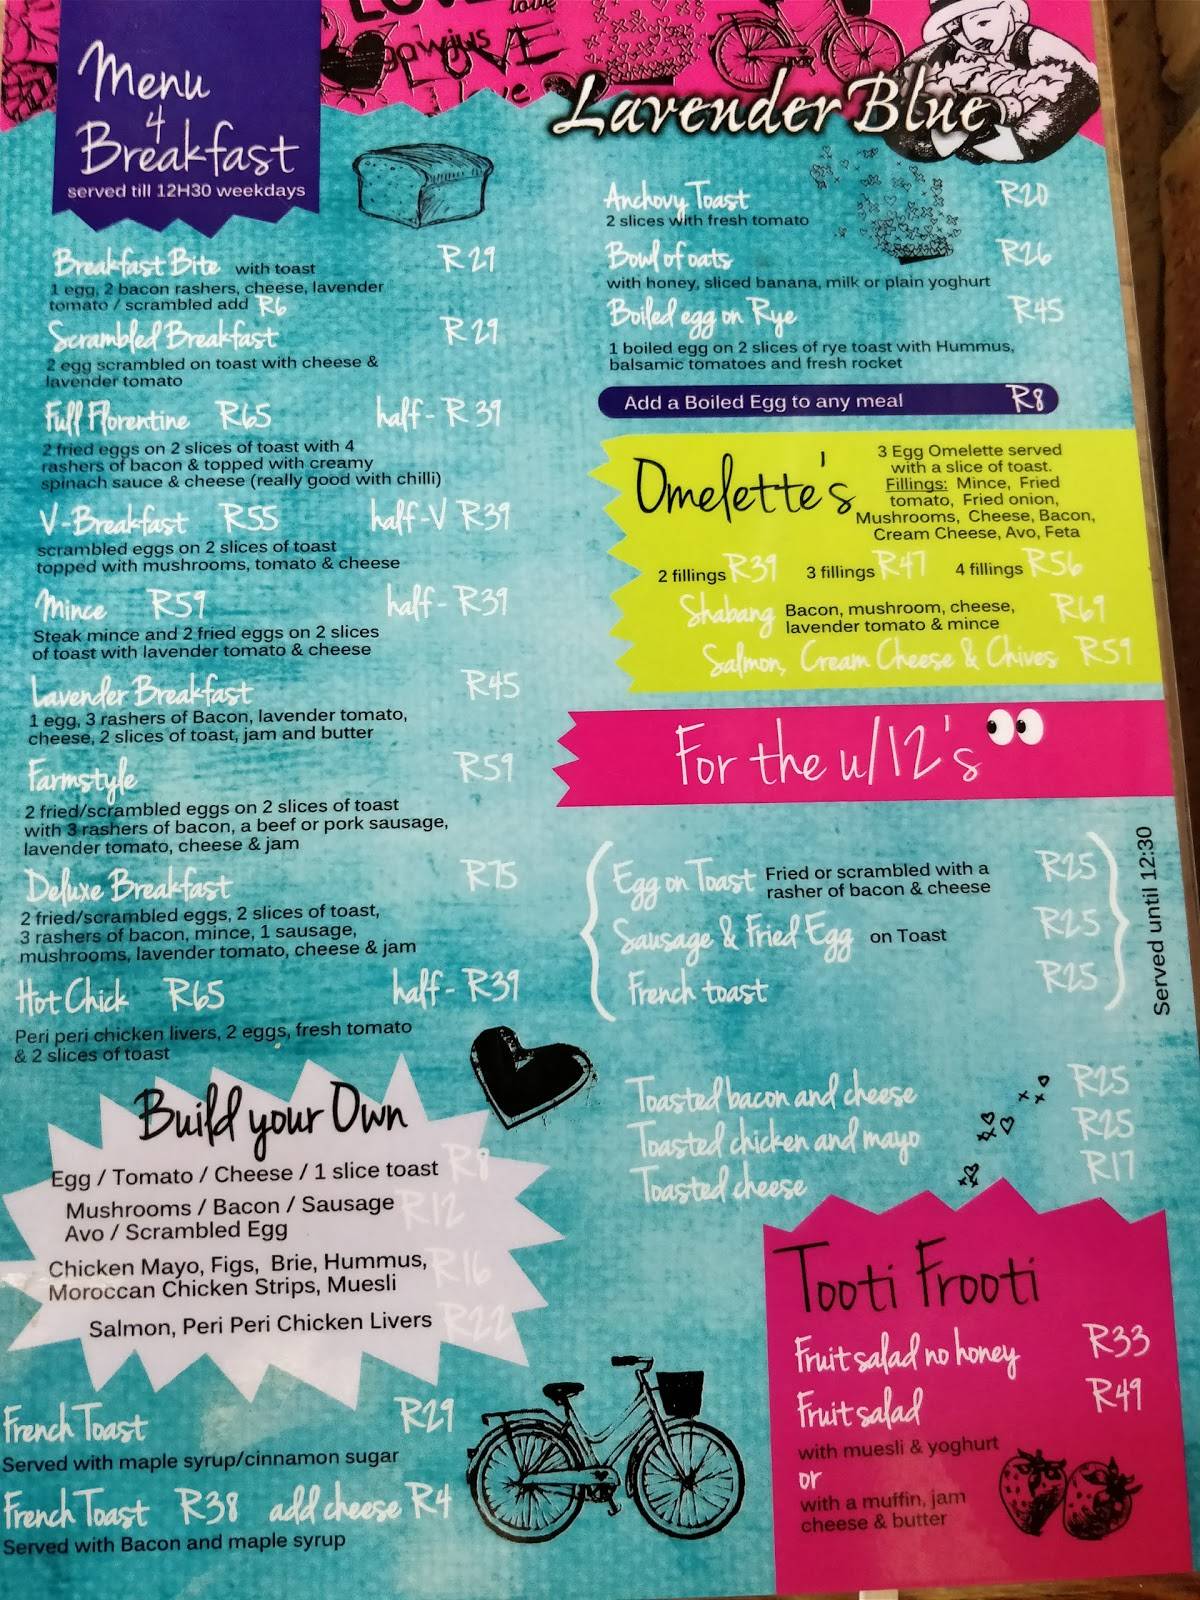 LOVE
love
gawjus
LOVE
I Love
Menu
4
Breakfast
served till 12H30 weekdays
Lavender Blue
Breakfast Bite with toast R29
1 egg, 2 bacon rashers, cheese, lavender
tomato / scrambled add R6
Scrambled Breakfast R29
2 egg scrambled on toast with cheese &
lavender tomato
Full Florentine R65 half- R39
2 fried eggs on 2 slices of toast with 4
rashers of bacon & topped with creamy
spinach sauce & cheese (really good with chilli)
V-Breakfast R55 half-V R39
scrambled eggs on 2 slices of toast
topped with mushrooms, tomato & cheese
Mince R59 half- R39
Steak mince and 2 fried eggs on 2 slices
of toast with lavender tomato & cheese
Lavender Breakfast R45
1 egg, 3 rashers of Bacon, lavender tomato,
cheese, 2 slices of toast, jam and butter
Farmstyle R59
2 fried/scrambled eggs on 2 slices of toast
with 3 rashers of bacon, a beef or pork sausage,
lavender tomato, cheese & jam
Deluxe Breakfast R75
2 fried/scrambled eggs, 2 slices of toast,
3 rashers of bacon, mince, 1 sausage,
mushrooms, lavender tomato, cheese & jam
Hot Chick R65 half- R39
Peri peri chicken livers, 2 eggs, fresh tomato
& 2 slices of toast
Build your Own
Egg / Tomato / Cheese / 1 slice toast R8
Mushrooms / Bacon / Sausage R12
Avo / Scrambled Egg
Chicken Mayo, Figs, Brie, Hummus, R16
Moroccan Chicken Strips, Muesli
Salmon, Peri Peri Chicken Livers R22
French Toast R29
Served with maple syrup/cinnamon sugar
French Toast R38 add cheese R4
Served with Bacon and maple syrup
Anchovy Toast R20
2 slices with fresh tomato
Bowl of oats R26
with honey, sliced banana, milk or plain yoghurt
Boiled egg on Rye R45
1 boiled egg on 2 slices of rye toast with Hummus,
balsamic tomatoes and fresh rocket
Add a Boiled Egg to any meal R8
Omelette's
3 Egg Omelette served
with a slice of toast.
Fillings: Mince, Fried
tomato, Fried onion,
Mushrooms, Cheese, Bacon,
Cream Cheese, Avo, Feta
2 fillings R39 3 fillings R47 4 fillings R56
Shabang Bacon, mushroom, cheese, R69
lavender tomato & mince
Salmon, Cream Cheese & Chives R59
For the u/12's
Egg on Toast Fried or scrambled with a R25
rasher of bacon & cheese
Sausage & Fried Egg on Toast R25
French toast R25
Served until 12:30
Toasted bacon and cheese R25
Toasted chicken and mayo R25
Toasted cheese R17
Tooti Frooti
Fruit salad no honey R33
Fruit salad R49
with muesli & yoghurt
or
with a muffin, jam
cheese & butter